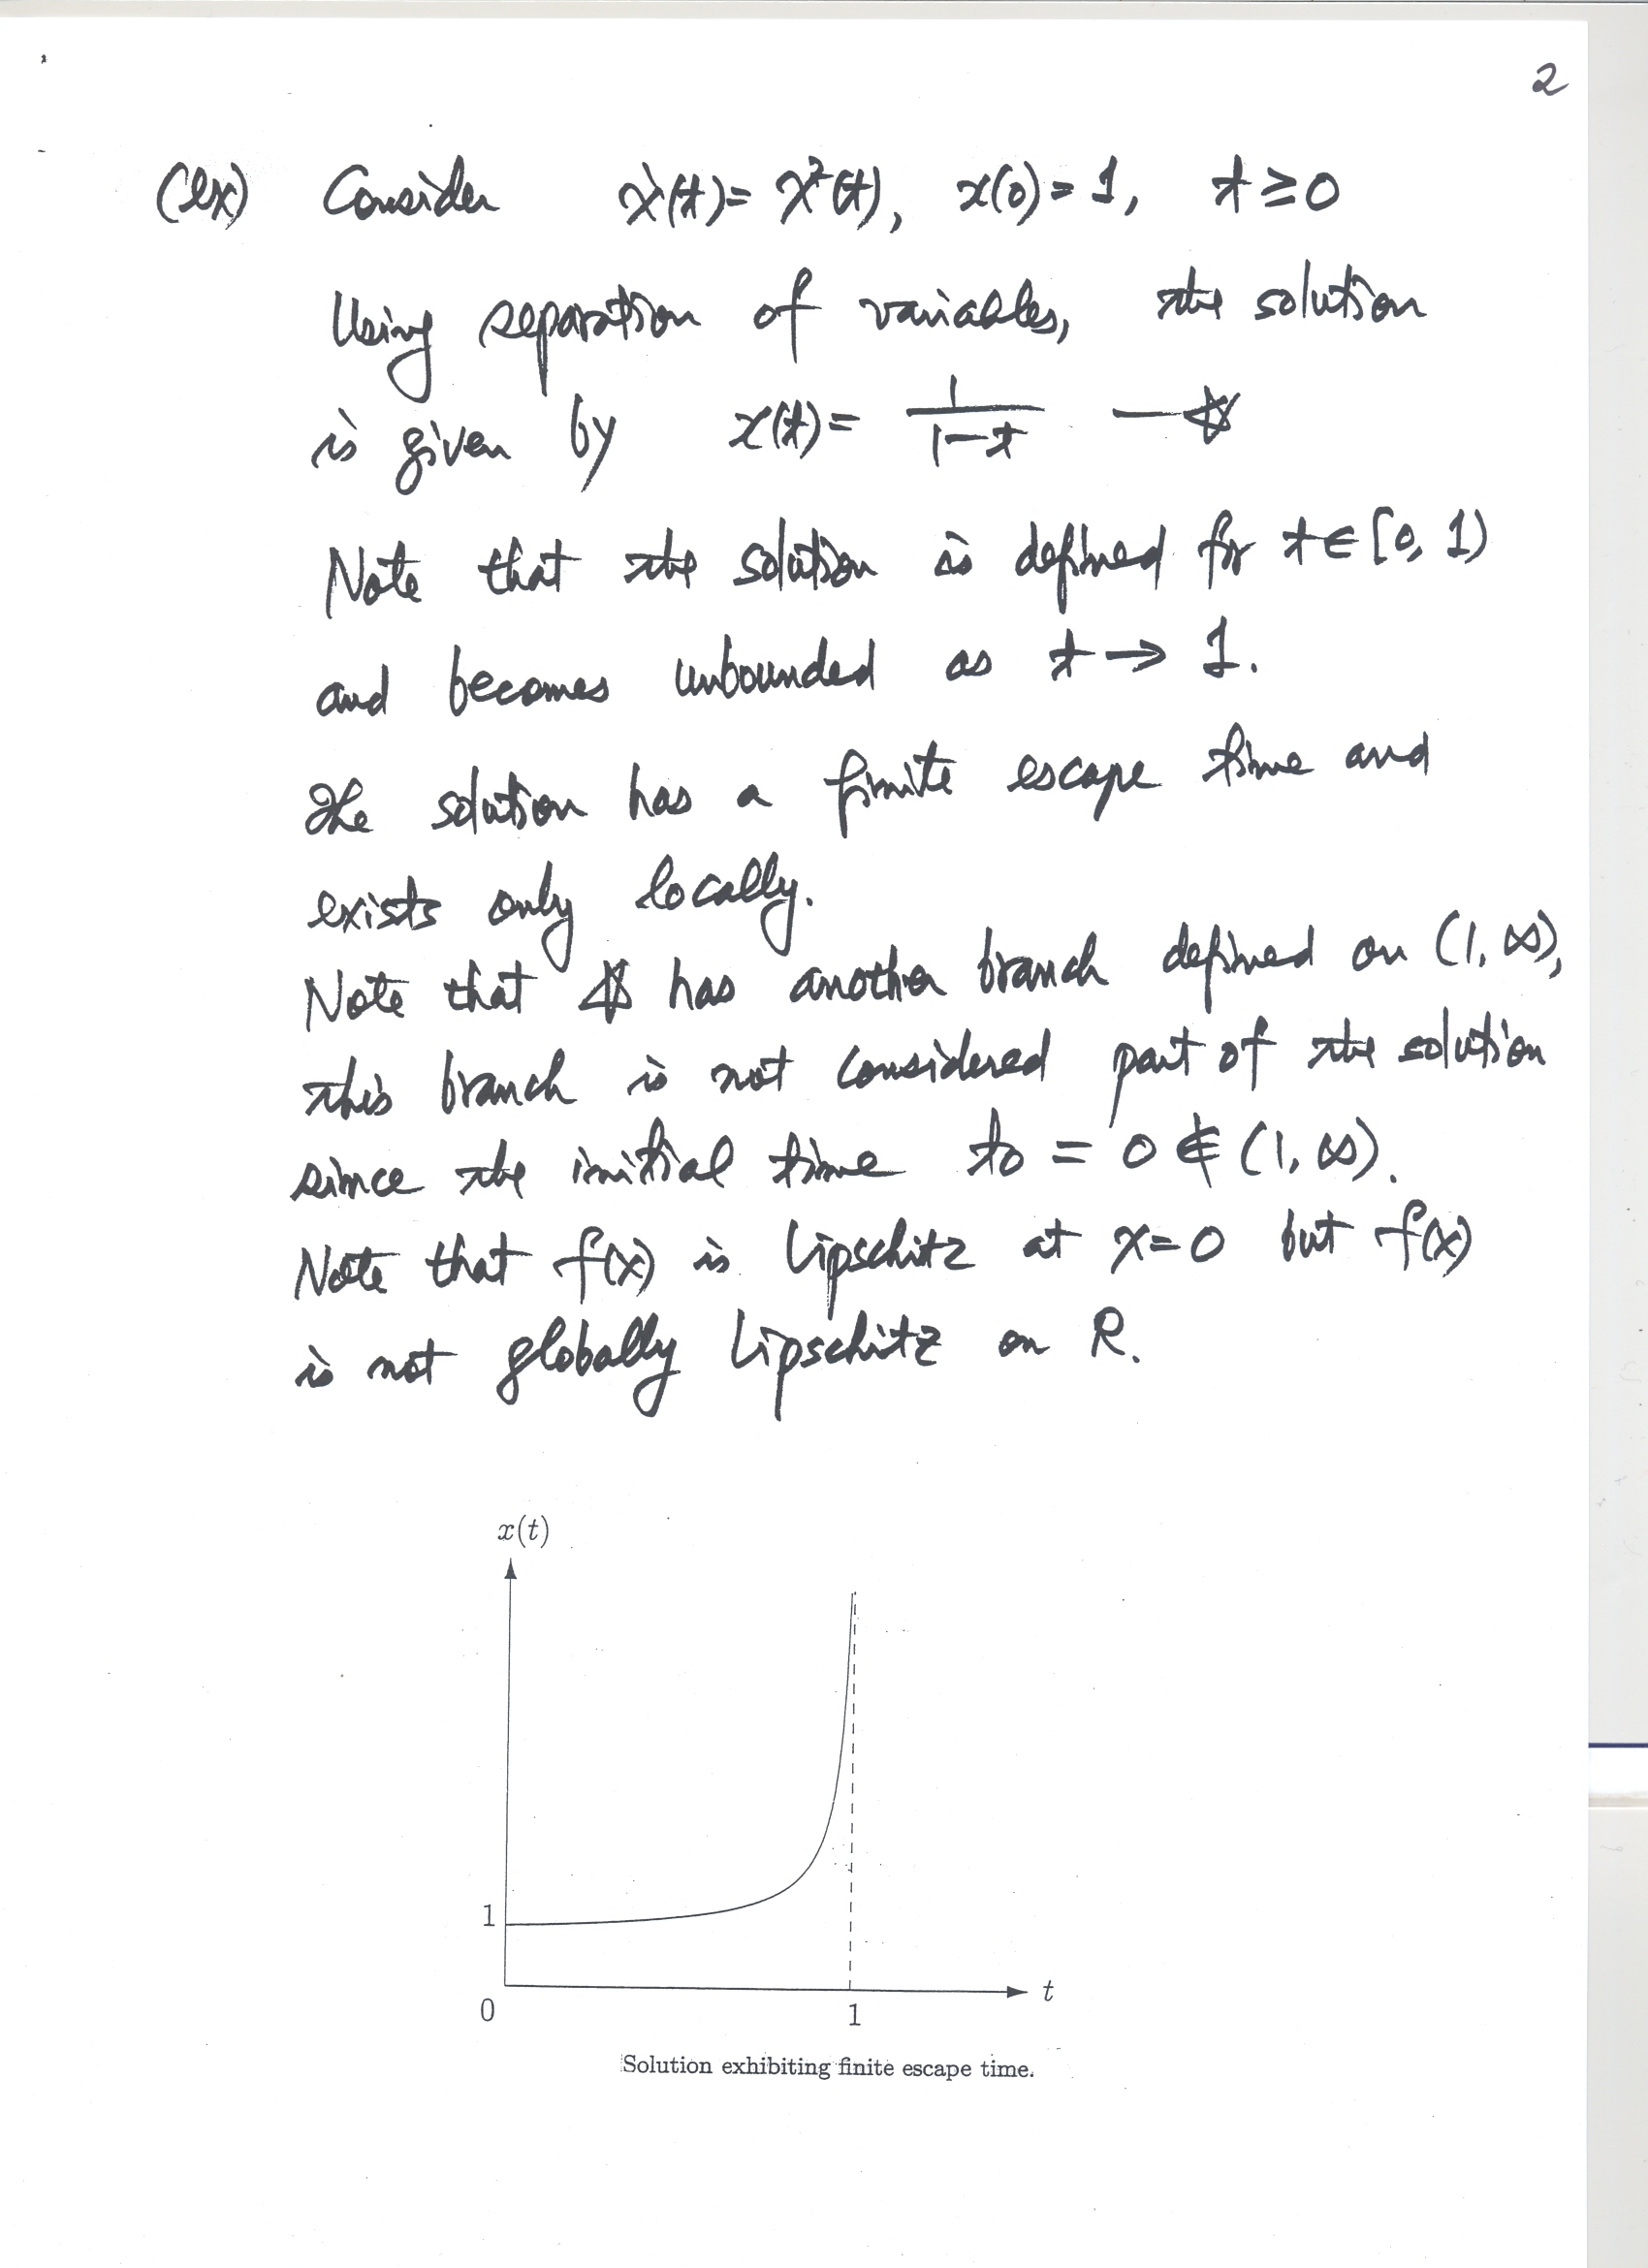 2
(ex) Consider ẋ(t) = x²(t), x(0) = 1, t ≥ 0
Using separation of variables, the solution
is given by x(t) = 1/(1-t) —☆
Note that the solution is defined for t ∈ [0, 1)
and becomes unbounded as t → 1.
The solution has a finite escape time and
exists only locally.
Note that ☆ has another branch defined on (1, ∞),
this branch is not considered part of the solution
since the initial time t₀ = 0 ∉ (1, ∞).
Note that f(x) is Lipschitz at x=0 but f(x)
is not globally Lipschitz on R.
x(t)
1
t
0
1
Solution exhibiting finite escape time.